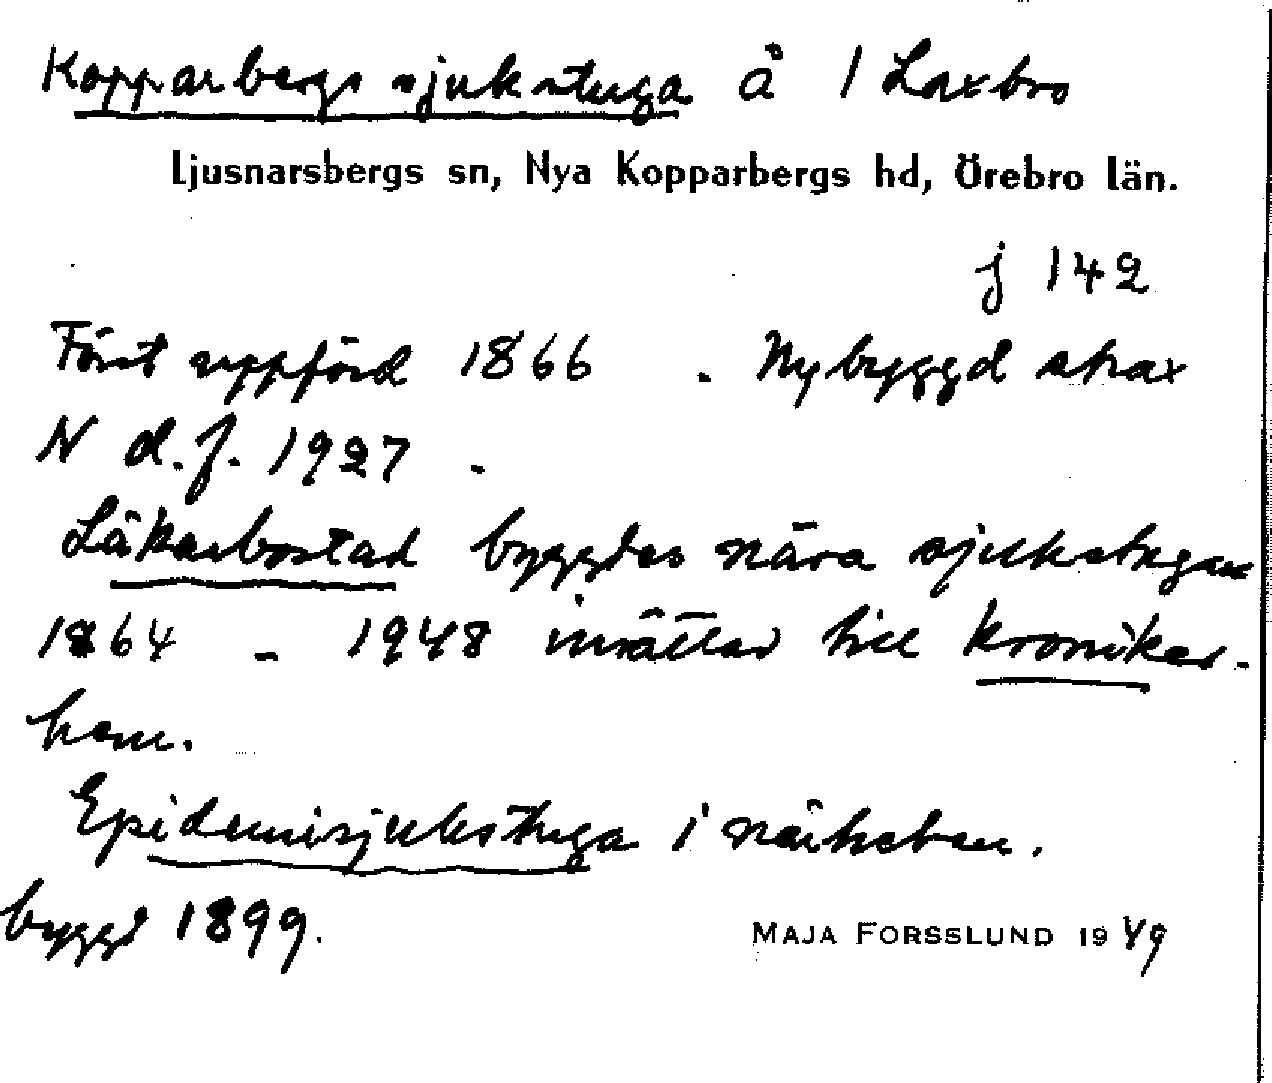 Kopparbergs sjukstuga å 1 Laxbro
Ljusnarsbergs sn, Nya Kopparbergs hd, Örebro län.
j 142
Först uppförd 1866 . Nybyggd strax
N d.f. 1927 -
Läkarbostad byggdes nära sjukstugan
1864 - 1948 inrättad till kroniker-
hem.
Epidemisjukstuga i närheten.
byggd 1899.
MAJA FORSSLUND 1949